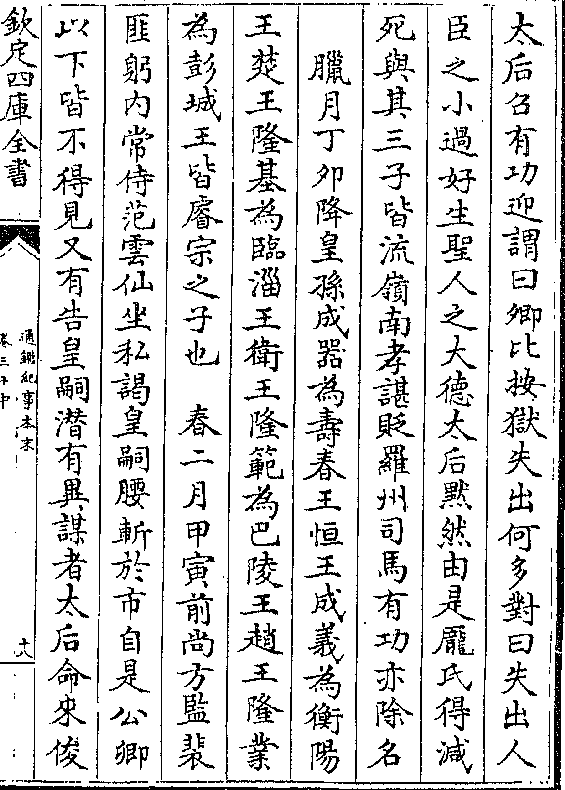 太后召有功迎謂曰卿比按獄失出何多對曰失出人
臣之小過好生聖人之大德太后黙然由是龎氏得減
死與其三子皆流嶺南孝諶貶羅州司馬有功亦除名
臘月丁夘降皇孫成器為壽春王恒王成義為衡陽
王楚王隆基為臨淄王衛王隆範為巴陵王趙王隆業
為彭城王皆睿宗之子也　春二月甲寅前尚方監裴
匪躬内常侍范雲仙坐私謁皇嗣腰斬於市自是公卿
以下皆不得見又有告皇嗣潛有異謀者太后命來俊
欽定四庫全書
通鑑紀事本末
卷三十中
十八